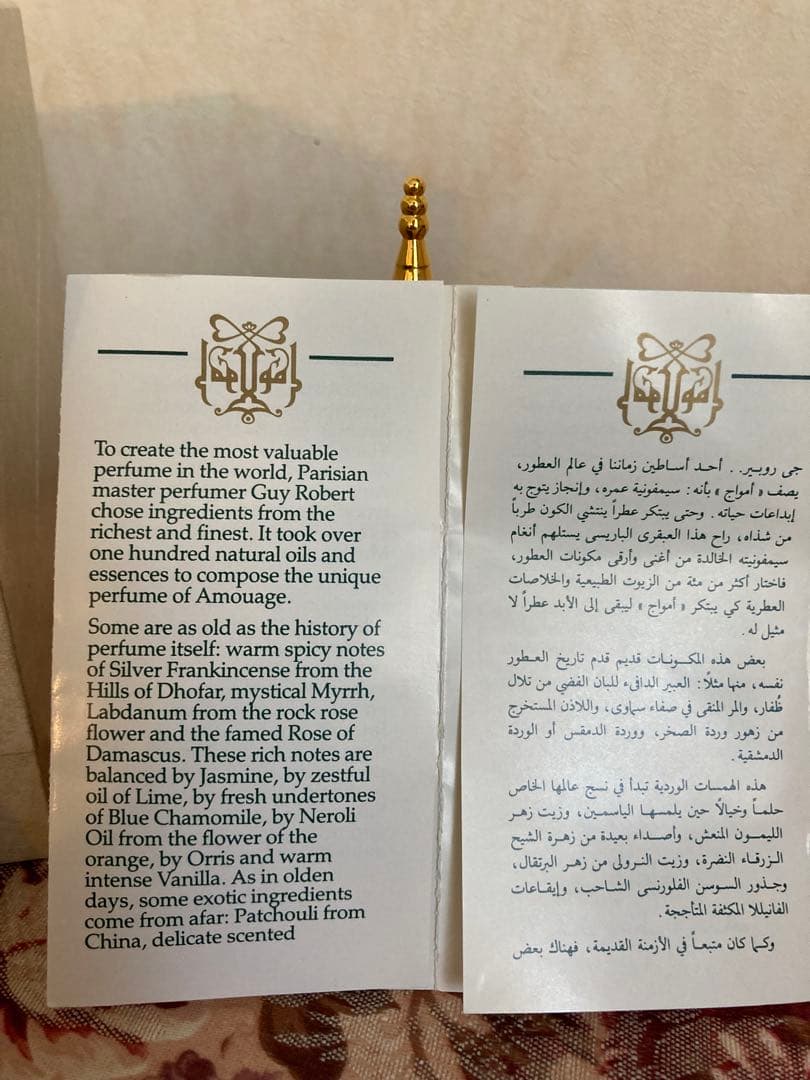 To create the most valuable
perfume in the world, Parisian
master perfumer Guy Robert
chose ingredients from the
richest and finest. It took over
one hundred natural oils and
essences to compose the unique
perfume of Amouage.
Some are as old as the history of
perfume itself: warm spicy notes
of Silver Frankincense from the
Hills of Dhofar, mystical Myrrh,
Labdanum from the rock rose
flower and the famed Rose of
Damascus. These rich notes are
balanced by Jasmine, by zestful
oil of Lime, by fresh undertones
of Blue Chamomile, by Neroli
Oil from the flower of the
orange, by Orris and warm
intense Vanilla. As in olden
days, some exotic ingredients
come from afar: Patchouli from
China, delicate scented
جى روبير.. أحد أساطين زماننا في عالم العطور،
يصف « أمواج » بأنه : سيمفونية عمره، وإنجاز يتوج به
إبداعات حياته. وحتى يبتكر عطراً ينتشي الكون طرباً
من شذاه، راح هذا العبقرى الباريسى يستلهم أنغام
سيمفونيته الخالدة من أغنى وأرقى مكونات العطور،
فاختار أكثر من مئة من الزيوت الطبيعية والخلاصات
العطرية كي يبتكر « أمواج » ليبقى إلى الأبد عطراً لا
مثيل له.
بعض هذه المكونات قديم قدم تاريخ العطور
نفسه، منها مثلاً: العبير الدافىء للبان الفضي من تلال
ظُفار، والمر المنقى في صفاء سماوى، واللاذن المستخرج
من زهور وردة الصخر، ووردة الدمقس أو الوردة
الدمشقية.
هذه الهمسات الوردية تبدأ في نسج عالمها الخاص
حلماً وخيالاً حين يلمسها الياسمين، وزيت زهر
الليمون المنعش، وأصداء بعيدة من زهرة الشيح
الزرقاء النضرة، وزيت النرولى من زهر البرتقال،
وجذور السوسن الفلورنسى الشاحب، وإيقاعات
الفانيللا المكثفة المتأججة.
وكما كان متبعاً في الأزمنة القديمة، فهناك بعض